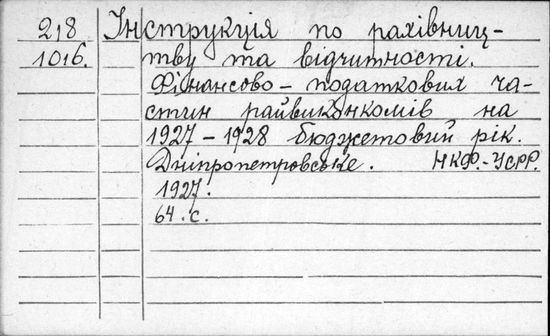 218 Інструкція по рахівниц-
1016. тву та відчитності.
Фінансово-податкових ча-
стин райвиконкомів на
1927-1928 бюджетовий рік.
Дніпропетровське. НКФ.-УСРР.
1927.
64.с.